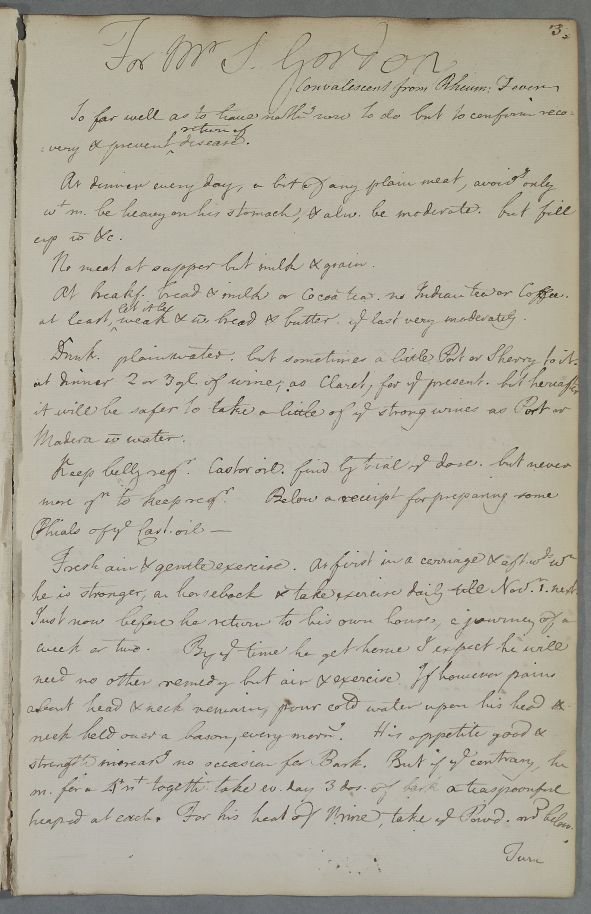 3.
For Mr S. Gordon
Convalescent from Rheum: Fever
So far well as to have noth:g now to do but to confirm reco=
=very & prevent return of disease.
At dinner every day, a bit of any plain meat, avoid:g only
wt m. be heavy on his stomach, & alw. be moderate. but fill
up &c.
No meat at supper but milk & grain.
At breakf. bread & milk or Cocoa tea. no Indian tea or Coffee.
at least, let it be weak & bread & butter. ye last very moderately.
Drink. plain water. but sometimes a little Port or Sherry to it.
at dinner 2 or 3 gl. of wine, as Claret, for ye present. but hereafter
it will be safer to take a little of ye strong wines as Port or
Madera water.
Keep belly regr. Castor oil. find by trial ye dose. but never
more yn to keep regr. Below a receipt for preparing some
Phials of ye Cast: oil —
Fresh air & gentle exercise. At first in a carriage & aftwds wn
he is stronger, on horseback & take exercise daily till Novr. 1. next.
Just now before he return to his own house, a journey of a
week or two. By ye time he get home I expect he will
need no other remedy but air & exercise. If however pains
about head & neck remain, pour cold water upon his head &
neck held over a bason, every morng. His appetite good &
strength increasg no occasion for Bark. But if ye contrary, he
m. for a togeth: take ev. day 3 dos. of bark a teaspoonful
heaped at each. For his heat of Urine, take ye Powd. below.
Turn